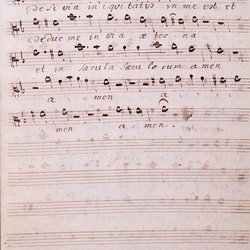 et si via iniquitatis in me est et
deduc me in via æterna
et in sæcula sæculorum amen
amen a
men amen.